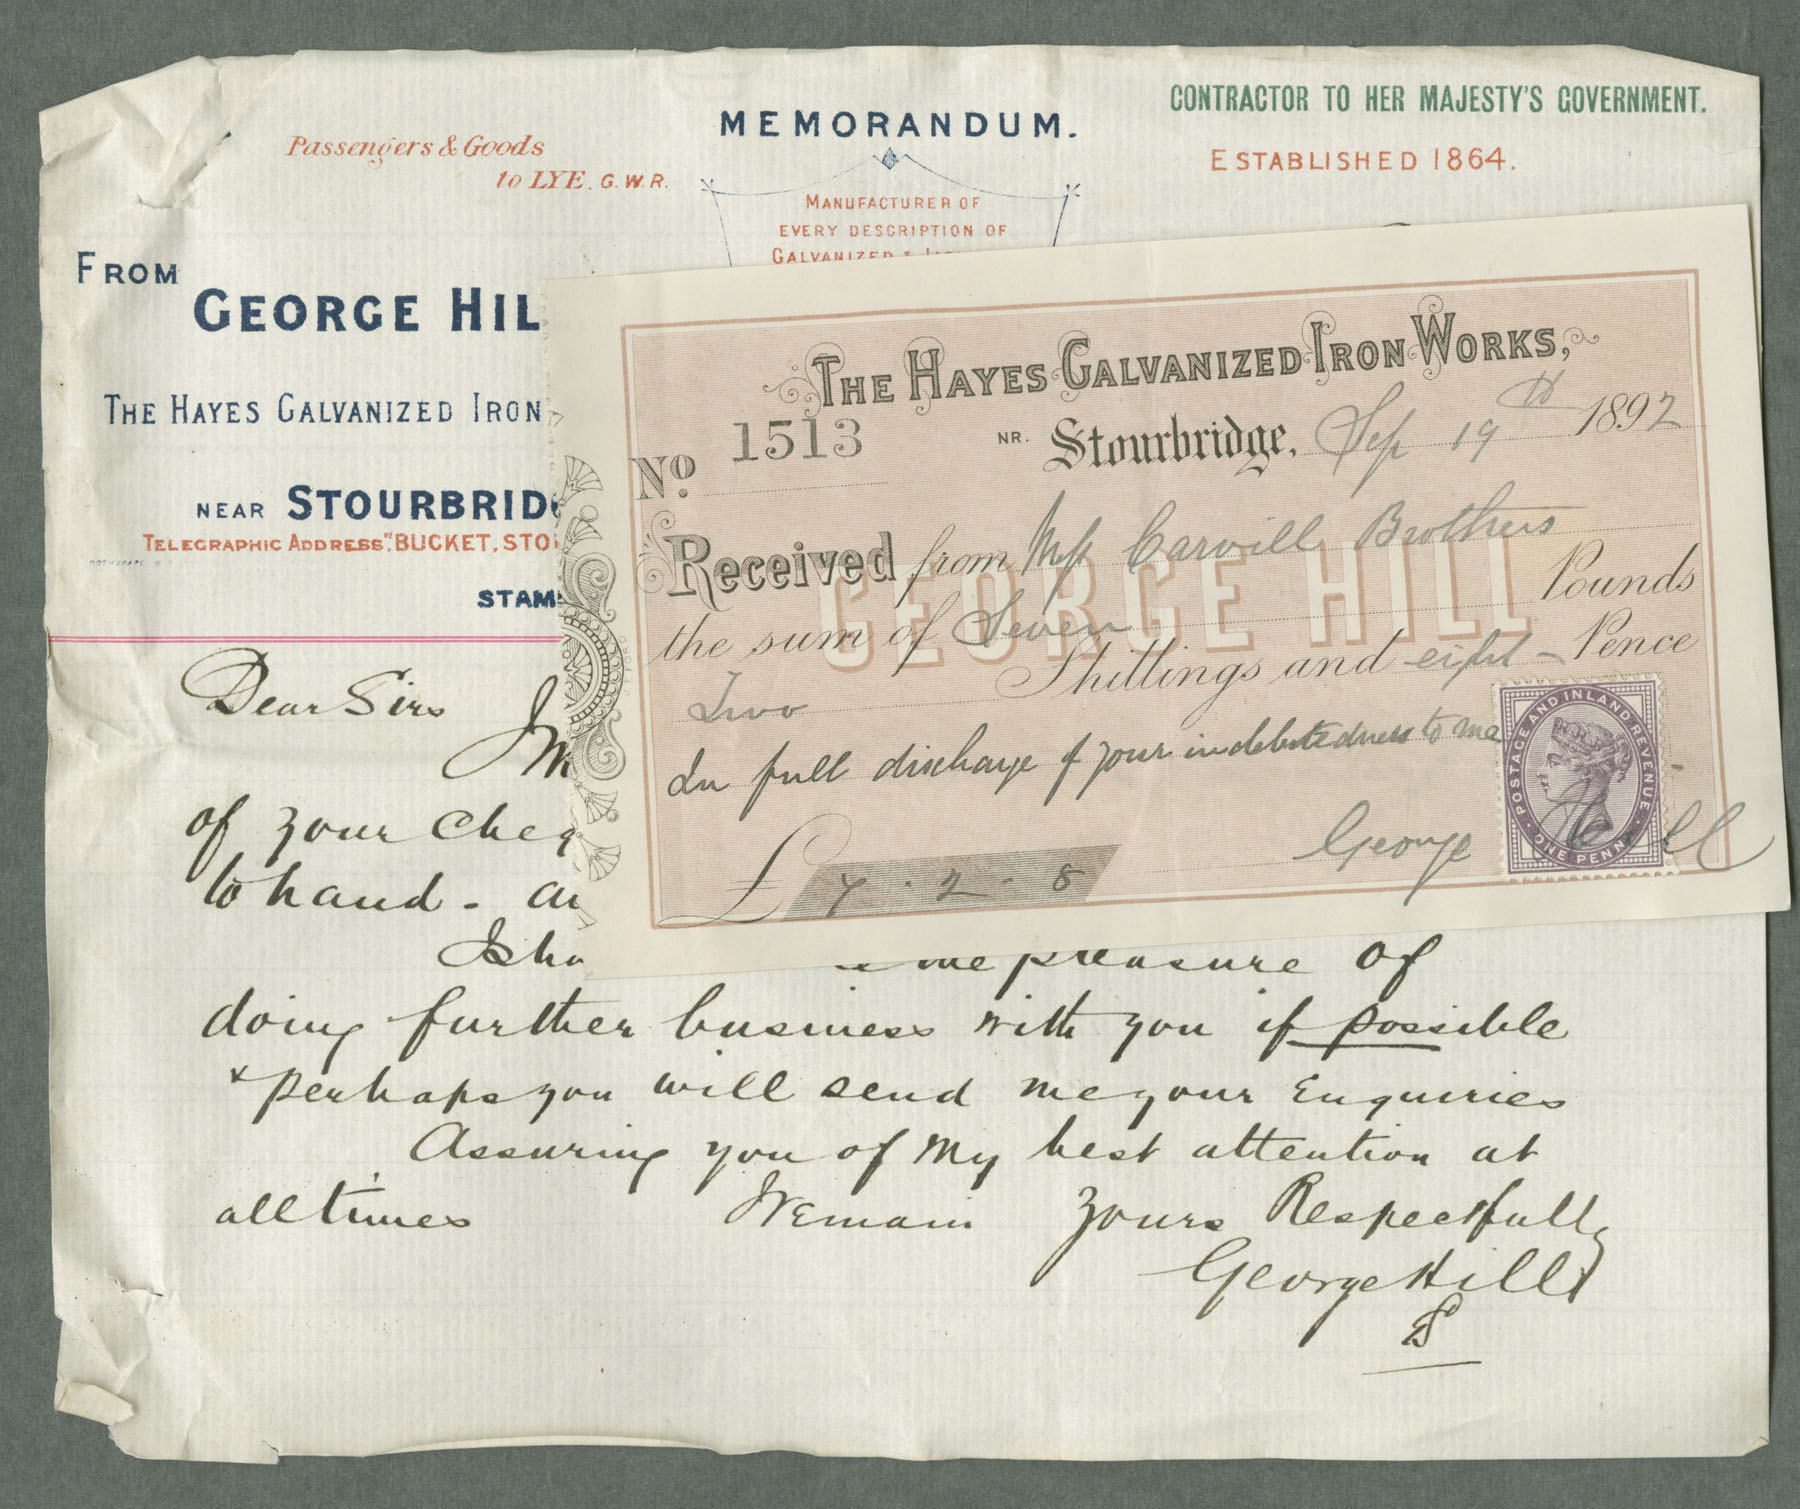 CONTRACTOR TO HER MAJESTY'S GOVERNMENT.
MEMORANDUM.
Passengers & Goods
to LYE. G.W.R.
ESTABLISHED 1864.
MANUFACTURER OF
EVERY DESCRIPTION OF
GALVANIZED &
FROM
GEORGE HIL
THE HAYES GALVANIZED IRON
NEAR STOURBRID
TELEGRAPHIC ADDRESS "BUCKET, STO
STAM
Dear Sirs
of your Cheq
to hand - an
I sha
the pleasure of
doing further business with you if possible
& perhaps you will send me your Enquiries
Assuring you of My best attention at
all times I Remain Yours Respectfully
George Hill
THE HAYES GALVANIZED IRON WORKS,
No. 1513
NR. Stourbridge, Sep 19th 1892
Received from Mess Carvill Brothers
the sum of Seven Pounds
Two Shillings and eight - Pence
In full discharge of your indebtedness to me
George Hill
£ 7 . 2 . 8
GEORGE HILL
POSTAGE AND INLAND REVENUE
ONE PENNY